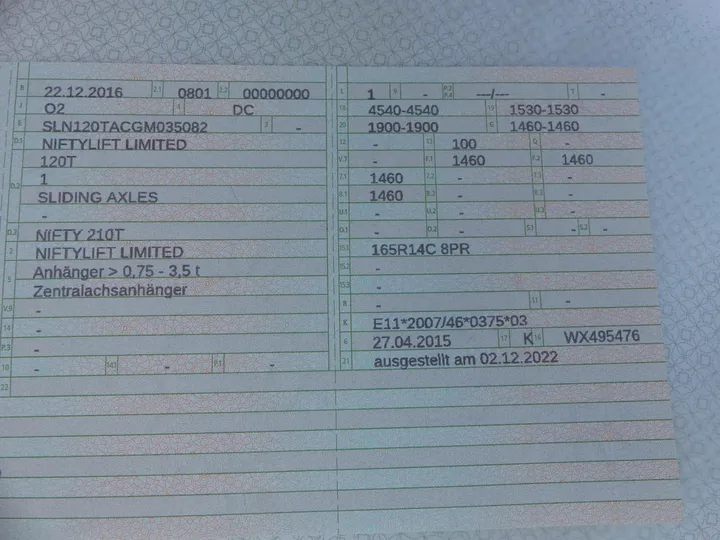 B 22.12.2016 2.1 0801 2.2 00000000
J O2 4 DC
E SLN120TACGM035082 3 -
D.1 NIFTYLIFT LIMITED
120T
D.2 1
SLIDING AXLES
-
D.3 NIFTY 210T
2 NIFTYLIFT LIMITED
5 Anhänger > 0,75 - 3,5 t
Zentralachsanhänger
V.9 -
14 -
P.3 -
10 - 14.1 - P.1 -
22
L 1 9 - P.2 P.4 ---/--- T -
18 4540-4540 19 1530-1530
20 1900-1900 G 1460-1460
12 - 13 100 Q -
V.7 - F.1 1460 F.2 1460
7.1 1460 7.2 - 7.3 -
8.1 1460 8.2 - 8.3 -
U.1 - U.2 - U.3 -
O.1 - O.2 - S.1 - S.2 -
15.1 165R14C 8PR
15.2 -
15.3 -
R - 11 -
K E11*2007/46*0375*03
6 27.04.2015 17 K 16 WX495476
21 ausgestellt am 02.12.2022